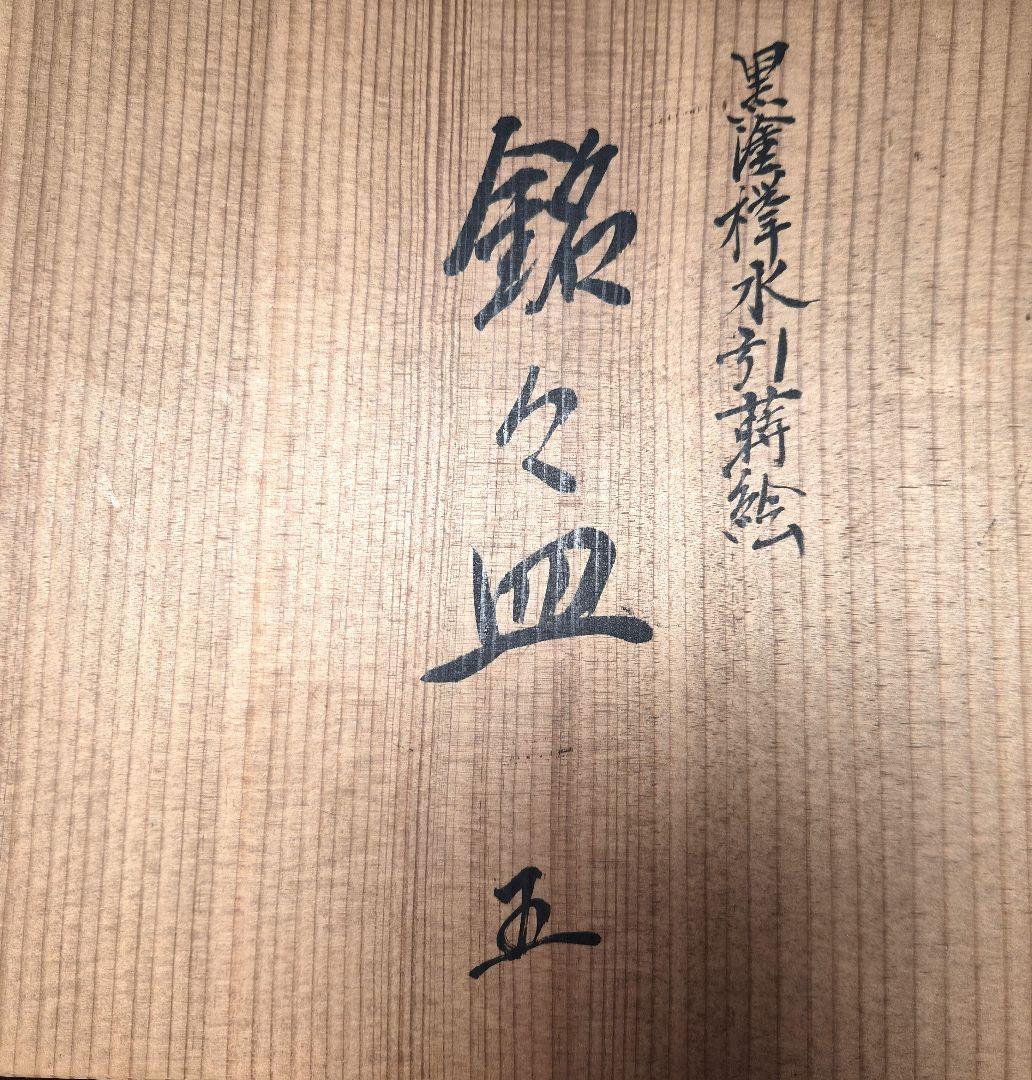 黒塗欅水引蒔絵
銘々皿 五